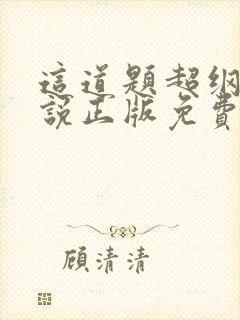 這道題超纲
說正版免費
顧清清